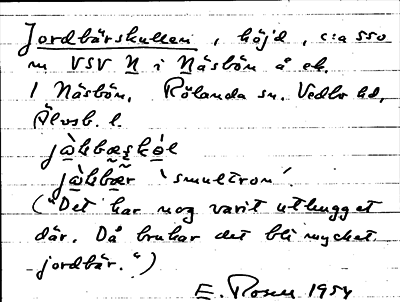 Jordbärskullen, höjd, c:a 550
m VSV N i Näsbön å ek.
1 Näsbön, Rölanda sn. Vedbo hd,
Älvsb. l.
'smultron'.
("Det har nog varit uthugget
där. Då brukar det bli mycket
jordbär.")
E. Rosell 1954